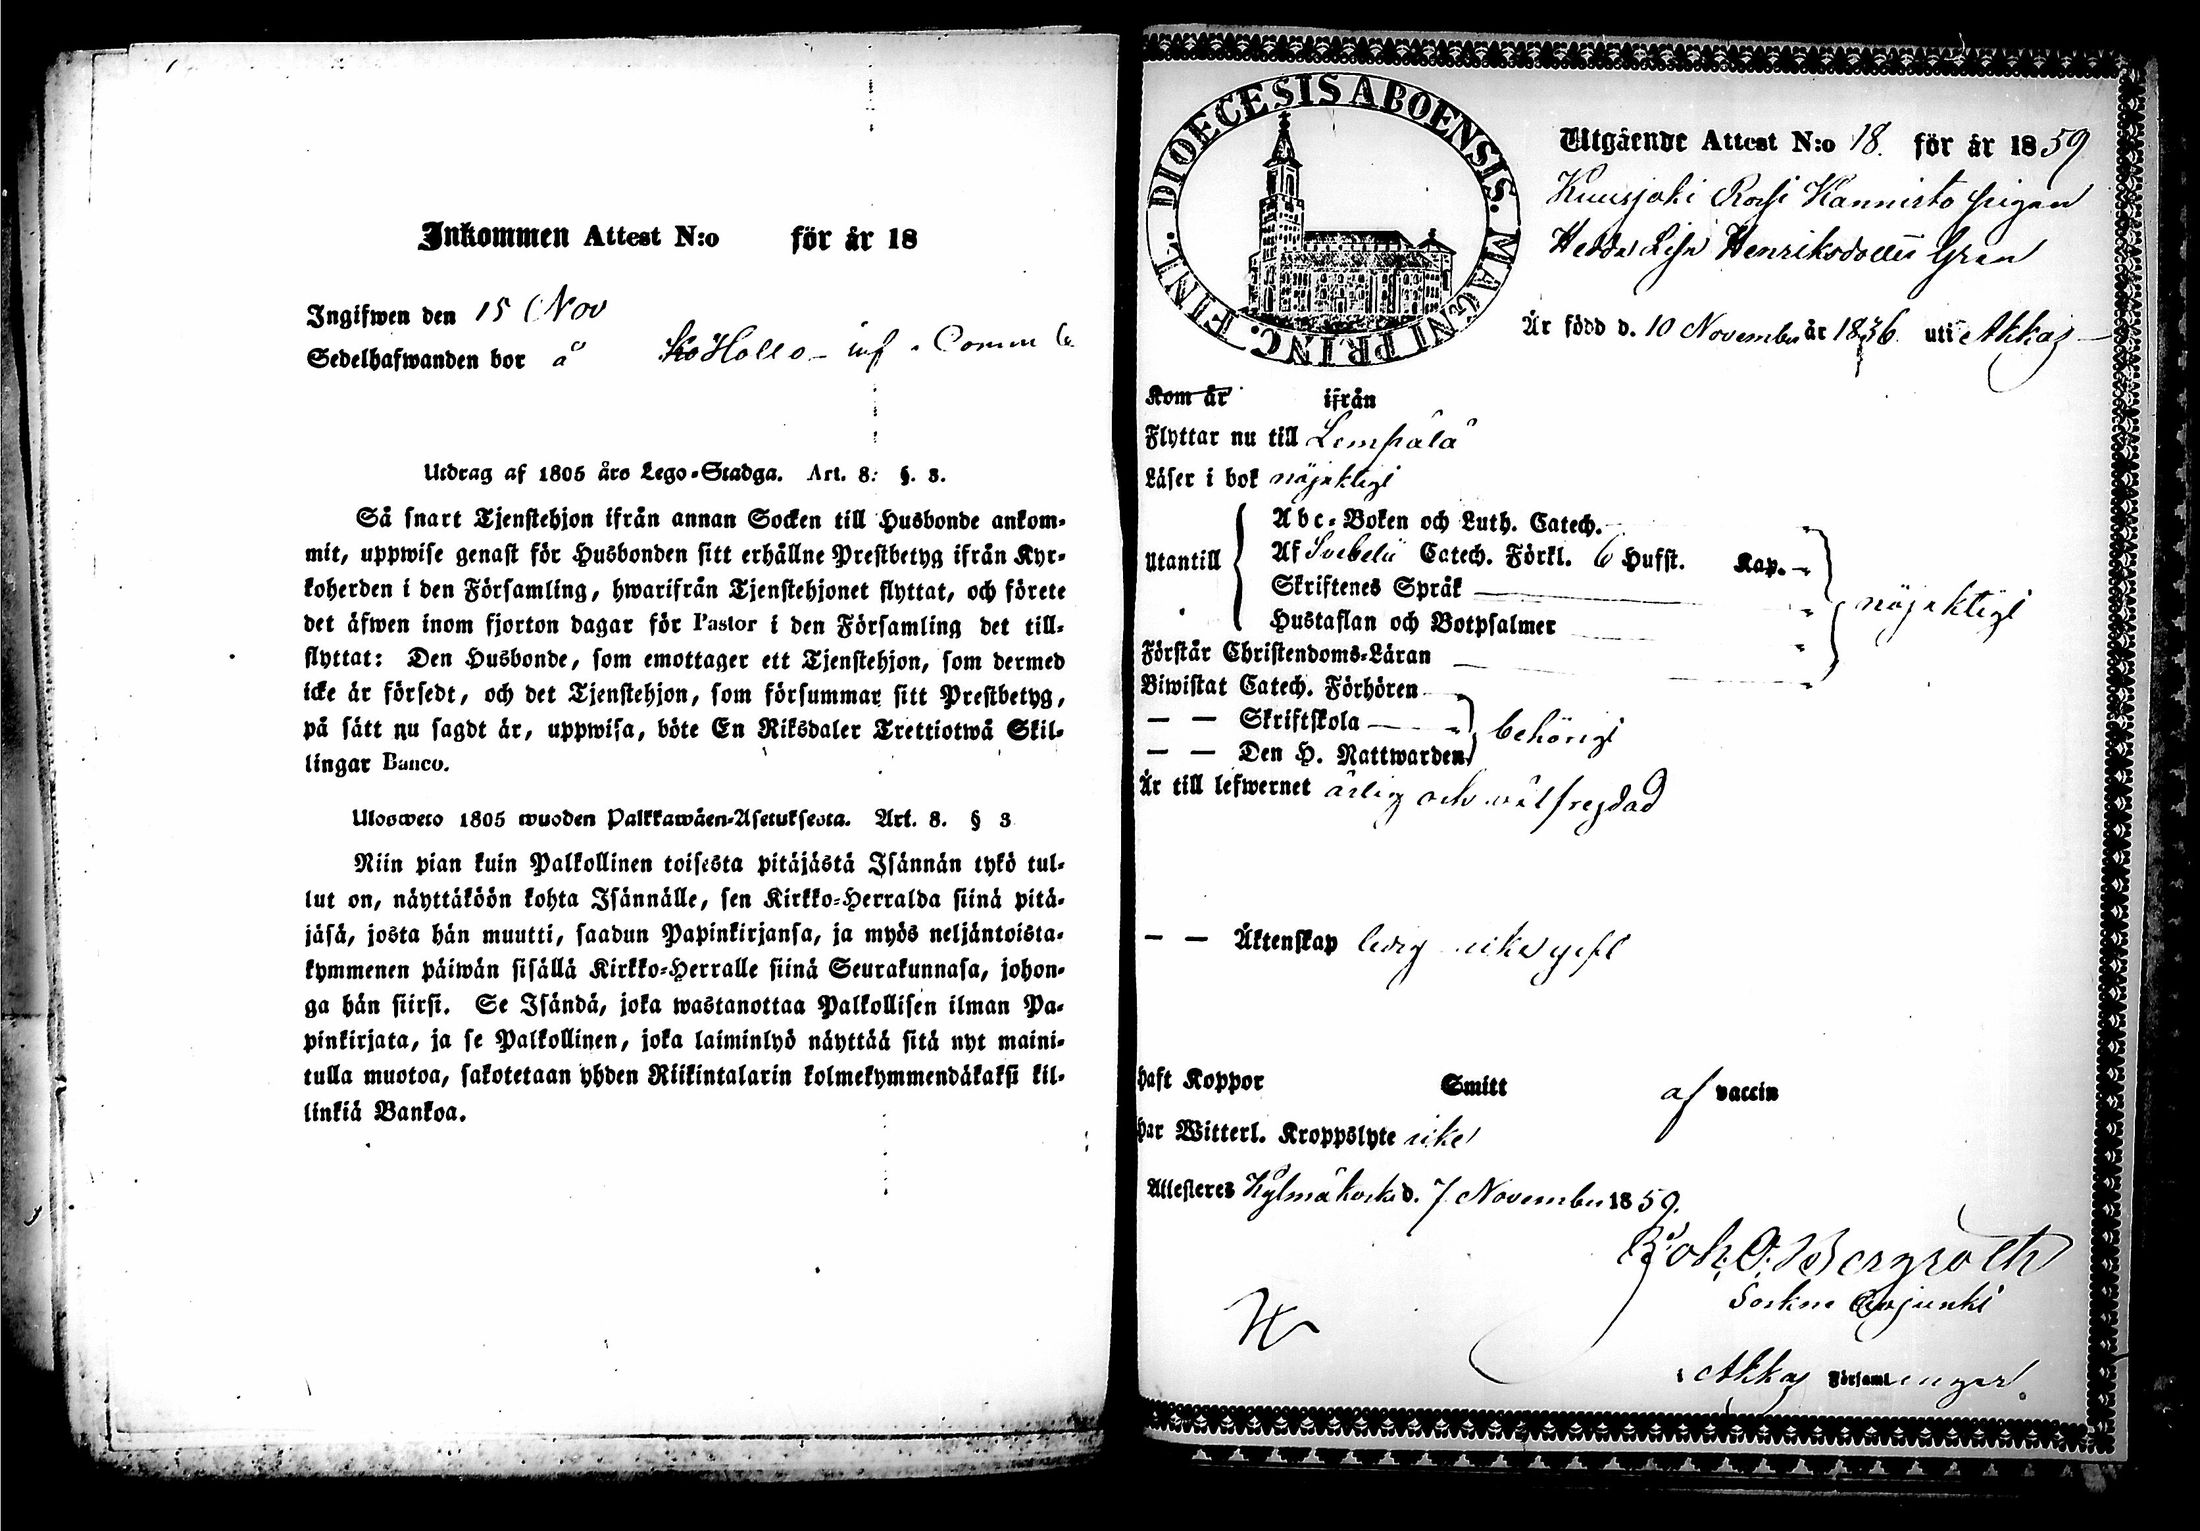 Inkommen Attest N:o för år 18
Ingifwen den 15 Nov
Sedelhafwanden bor å Hollo - inf - Comm
Utdrag af 1805 års Lego-Stadga. Art. 8: §. 3.
Så snart Tjenstehjon ifrån annan Socken till Husbonde ankom-
mit, uppwise genast för Husbonden sitt erhållne Prestbetyg ifrån Kyr-
koherden i den Församling, hwarifrån Tjenstehjonet flyttat, och förete
det äfwen inom fjorton dagar för Pastor i den Församling det till-
flyttat: Den Husbonde, som emottager ett Tjenstehjon, som dermed
icke är försedt, och det Tjenstehjon, som försummar sitt Prestbetyg,
på sätt nu sagdt är, uppwisa, böte En Riksdaler Trettiotwå Skil-
lingar Banco.
Ulosweto 1805 wuoden Palkkawäen-Asetuksesta. Art. 8. § 3
Niin pian kuin Palkollinen toisesta pitäjästä Isännän tykö tul-
lut on, näyttäköön kohta Isännälle, sen Kirkko-Herralda siinä pitä-
jäsä, josta hän muutti, saadun Papinkirjansa, ja myös neljäntoista-
kymmenen päiwän sisällä Kirkko-Herralle siinä Seurakunnasa, johon-
ga hän siirsi. Se Isändä, joka wastanottaa Palkollisen ilman Pa-
pinkirjata, ja se Palkollinen, joka laiminlyö näyttää sitä nyt maini-
tulla muotoa, sakotetaan yhden Riikintalarin kolmekymmendäkaksi kil-
linkiä Bankoa.
DIOECESIS ABOENSIS. MAGNI PRINC. FINL.
Utgående Attest N:o 18. för år 1859
Kuusjoki Rossi Kannisto pigan
Hedda Lisa Henriksdotter Gran
Är född d. 10 November år 1836 uti Akkas
Kom år ifrån
Flyttar nu till Lempälä
Läser i bok nöjaktigt
Utantill
Abc-Boken och Luth. Catech.
Af Svebelii Catech. Förkl. 6 Hufst. Kap.
Skriftenes Språk
Hustaflan och Botpsalmer
nöjaktigt
Förstår Christendoms-Läran
Biwistat Catech. Förhören
— — Skriftskola
behörigt
— — Den H. Nattwarden
Är till lefwernet ärlig och välfrejdad
— — Äktenskap ledig
haft Koppor Smitt af vaccin
har Witterl. Kroppslyte icke
Attesteras Kylmäkoski d. 7 November 1859.
Joh: O: Bergroth
Sockne Adjunkt
Akkas Församlingar.